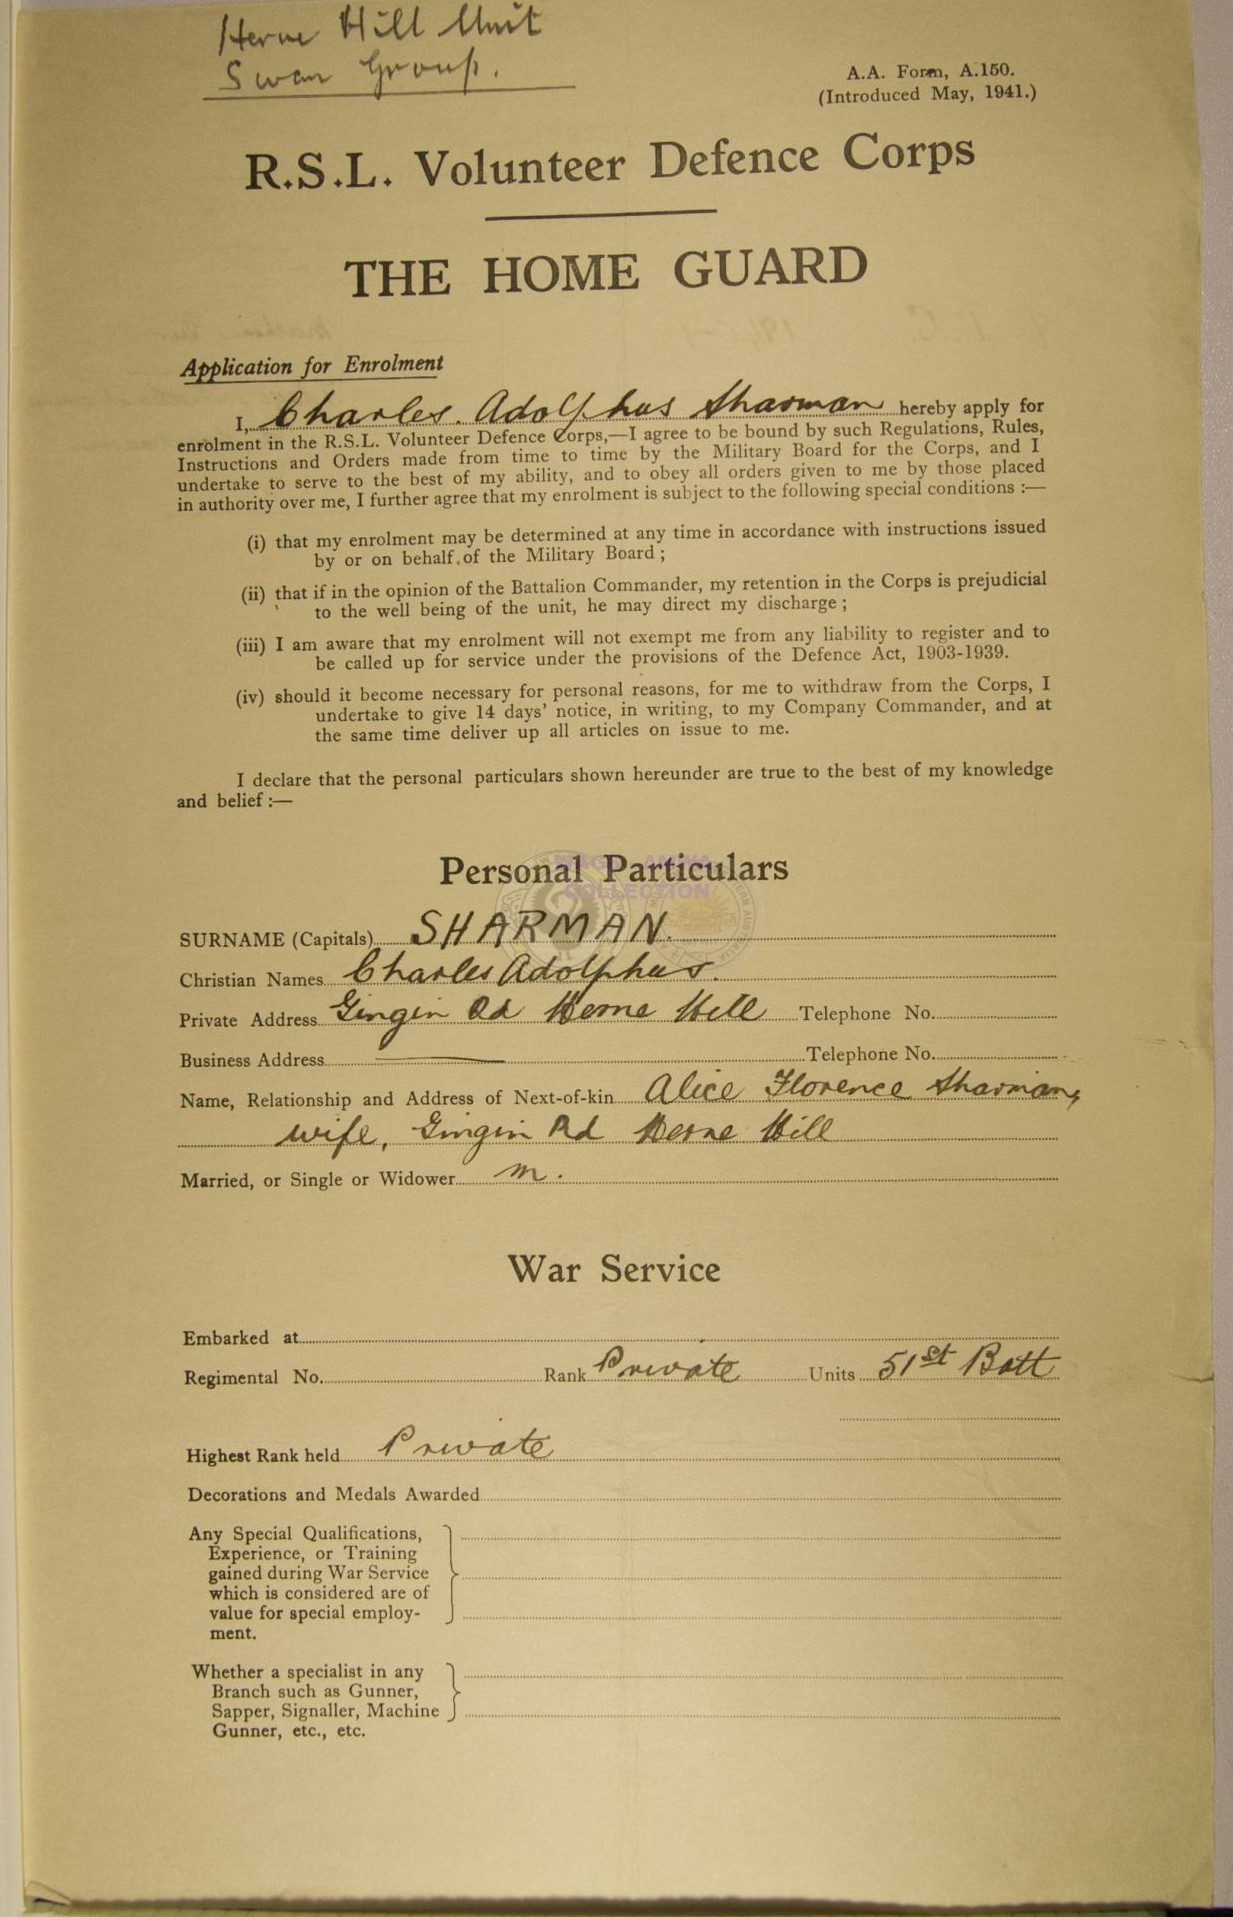 Herne Hill Unit
Swan Group.
A.A. Form, A.150.
(Introduced May, 1941.)
R.S.L. Volunteer Defence Corps
THE HOME GUARD
Application for Enrolment
I, Charles. Adolphus Sharman hereby apply for
enrolment in the R.S.L. Volunteer Defence Corps,—I agree to be bound by such Regulations, Rules,
Instructions and Orders made from time to time by the Military Board for the Corps, and I
undertake to serve to the best of my ability, and to obey all orders given to me by those placed
in authority over me, I further agree that my enrolment is subject to the following special conditions :—
(i) that my enrolment may be determined at any time in accordance with instructions issued
by or on behalf of the Military Board ;
(ii) that if in the opinion of the Battalion Commander, my retention in the Corps is prejudicial
to the well being of the unit, he may direct my discharge ;
(iii) I am aware that my enrolment will not exempt me from any liability to register and to
be called up for service under the provisions of the Defence Act, 1903-1939.
(iv) should it become necessary for personal reasons, for me to withdraw from the Corps, I
undertake to give 14 days' notice, in writing, to my Company Commander, and at
the same time deliver up all articles on issue to me.
I declare that the personal particulars shown hereunder are true to the best of my knowledge
and belief :—
Personal Particulars
COLLECTION
SURNAME (Capitals) SHARMAN.
Christian Names Charles Adolphus.
Private Address Gingin Rd Herne Hill Telephone No.
Business Address Telephone No.
Name, Relationship and Address of Next-of-kin Alice Florence Sharman,
wife, Gingin Rd Herne Hill
Married, or Single or Widower m.
War Service
Embarked at
Regimental No. Rank Private Units 51st Batt
Highest Rank held Private
Decorations and Medals Awarded
Any Special Qualifications,
Experience, or Training
gained during War Service
which is considered are of
value for special employ-
ment.
Whether a specialist in any
Branch such as Gunner,
Sapper, Signaller, Machine
Gunner, etc., etc.